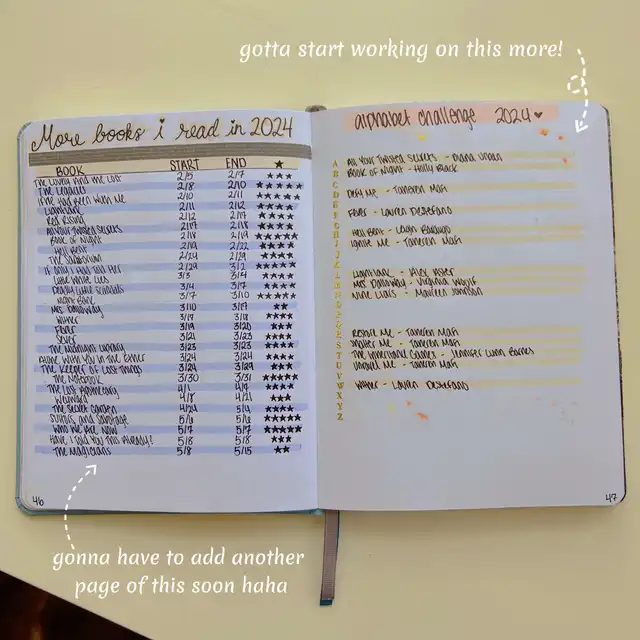 gotta start working on this more!
More books i read in 2024
BOOK START END ★
The Lovely and the Lost 2/5 2/7 ★★★★
The Legacies 2/8 2/10 ★★★★★
If He Had Been With Me 2/10 2/11 ★★★★
Lightlark 2/11 2/12 ★★★★
Red Rising 2/12 2/17
All Your Twisted Secrets 2/17 2/18 ★★★★
Book of Night 2/18 2/19
Hell Bent 2/19 2/22 ★★★★
The Sanatorium 2/24 2/29 ★★★★
If Only I Had Told Her 2/29 3/2
Little White Lies 3/3 3/4
Deadly Little Scandals 3/4 3/7
Night Bane 3/7 3/10 ★★★★★
Mrs. Dalloway 3/10 3/17 ★★
Wither 3/17 3/18
Fever 3/19 3/20 ★★★
Sever 3/21 3/23 ★★★★
The Midnight Library 3/23 3/23 ★★★★
Alone With You in the Ether 3/24 3/24
The Keeper of Lost Things 3/24 3/29 ★★★
The Notebook 3/30 3/31
The Lost Apothecary 4/1 4/4
4/8 4/21 ★★★
The Secret Garden 4/24 5/4
Suitors and Sabotage 5/6 5/6
Who We Are Now 5/7 5/7 ★★★★★
Have I Told You This Already? 5/8 5/8 ★★★
The Magicians 5/8 5/15 ★★
46
alphabet challenge 2024 ♥
A All Your Twisted Secrets - Diana Urban
B Book of Night - Holly Black
C
D Defy Me - Tahereh Mafi
E
F Fever - Lauren DeStefano
G
H Hell Bent - Leigh Bardugo
I Ignite Me - Tahereh Mafi
J
K
L Lightlark - Alex Aster
M Mrs. Dalloway - Virginia Woolf
N Nine Liars - Maureen Johnson
O
P
Q
R Restore Me - Tahereh Mafi
S Shatter Me - Tahereh Mafi
T The Inheritance Games - Jennifer Lynn Barnes
U Unravel Me - Tahereh Mafi
V
W Wither - Lauren DeStefano
X
Y
Z
47
gonna have to add another
page of this soon haha